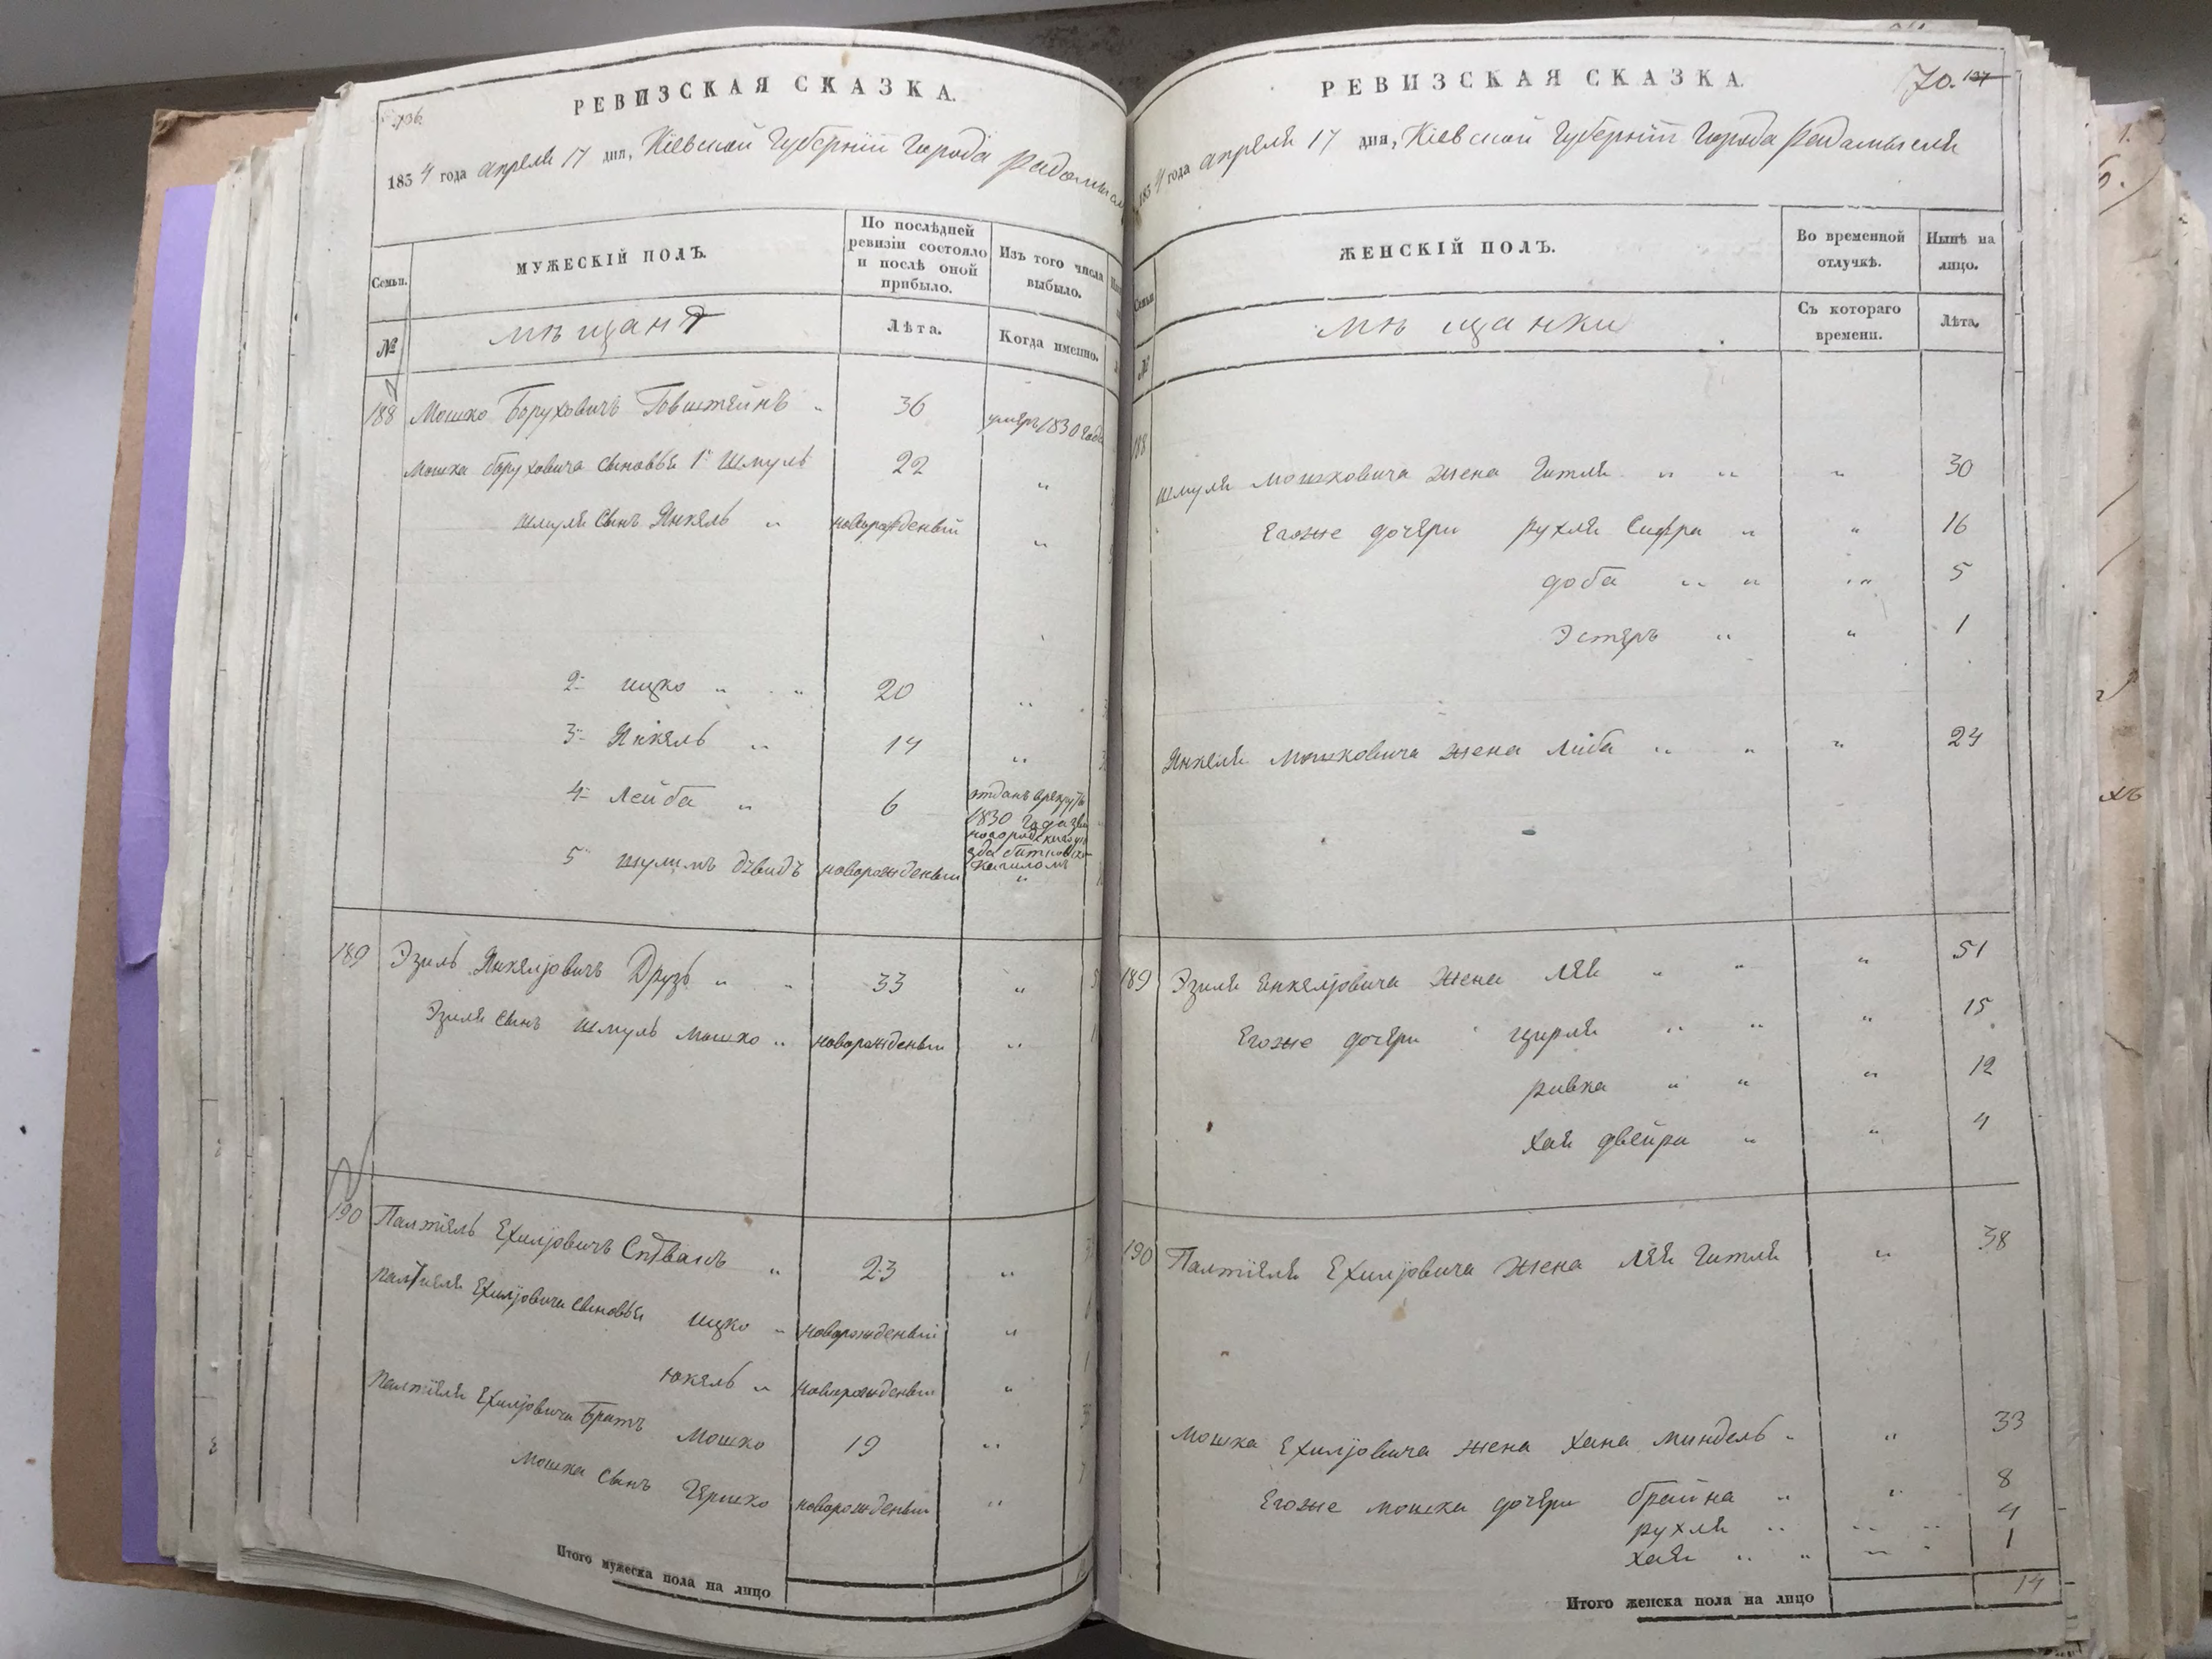 736.
РЕВИЗСКАЯ СКАЗКА.
1854 года апреля 17 дня, Кіевской Губерніи Города Радомысл
Семьи.
МУЖЕСКІЙ ПОЛЪ.
По послѣдней ревизіи состояло и послѣ оной прибыло.
Изъ того числа выбыло.
№
мѣщанъ
Лѣта.
Когда именно.
188 Мошко Боруховичъ 36 умеръ 1830 года
Мошка боруховича сыновья 1й Шмуль 22 "
шмуля сынъ Янкель " новорожденый "
2й ицко " " 20 "
3й Янкель " 14 "
4й Лейба " 6 отданъ врекруты 1830 года
5й шулимъ дъвидъ новорожденый "
189 Эзиль Янкеліовичъ Друзъ " " 33 "
Эзиля сынъ Шмуль Мошко " новорожденый "
190 Палтіель Ехиліовичъ " 23 "
Палтиеля Ехиліовича сыновья ицко " новорожденый "
Юкель " новорожденый "
Палтіеля Ехиліовича братъ Мошко 19 "
Мошка сынъ Гершко новорожденый "
Итого мужеска пола на лицо
РЕВИЗСКАЯ СКАЗКА.
70. 137
1854 года апреля 17 дня, Кіевской Губерніи Города Радамысля
Семьи
ЖЕНСКІЙ ПОЛЪ.
Во временной отлучкѣ.
Нынѣ на лицо.
№
мѣщанки
Съ котораго времени.
Лѣта.
188
Шмуля Мошковича жена Гитля " " " 30
Егоже дочери рухля Сифра " " 16
доба " " " 5
Эстеръ " " 1
Янкеля Мошковича жена Либа " " " 24
189 Эзиля Енкеліовича жена Лея " " " 51
Егоже дочери цирля " " " 15
ривка " " " 12
Хая двейра " " 4
190 Палтіеля Ехиліовича жена Лея Гитля " 38
Мошка Ехиліовича жена Хана Миндель " " 33
Егоже мошка дочери брайна " " 8
рухля " " " 4
хая " " " " 1
Итого женска пола на лицо 14